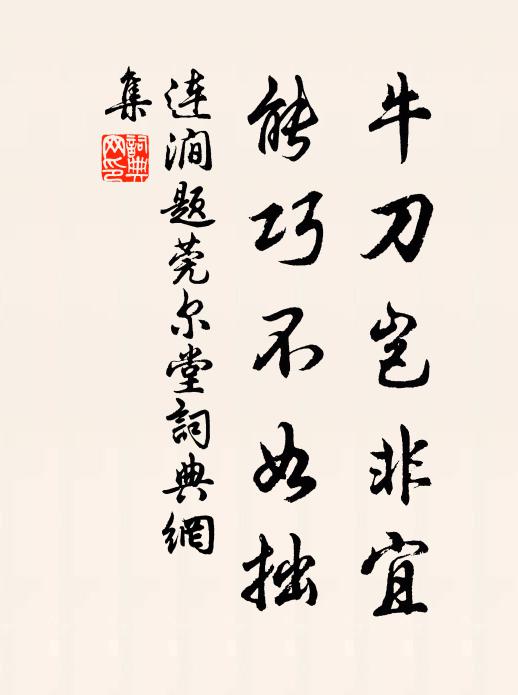 牛刀岂非宜
能巧不如拙
连涧题莞尔堂詞典網
集
詞典
网印